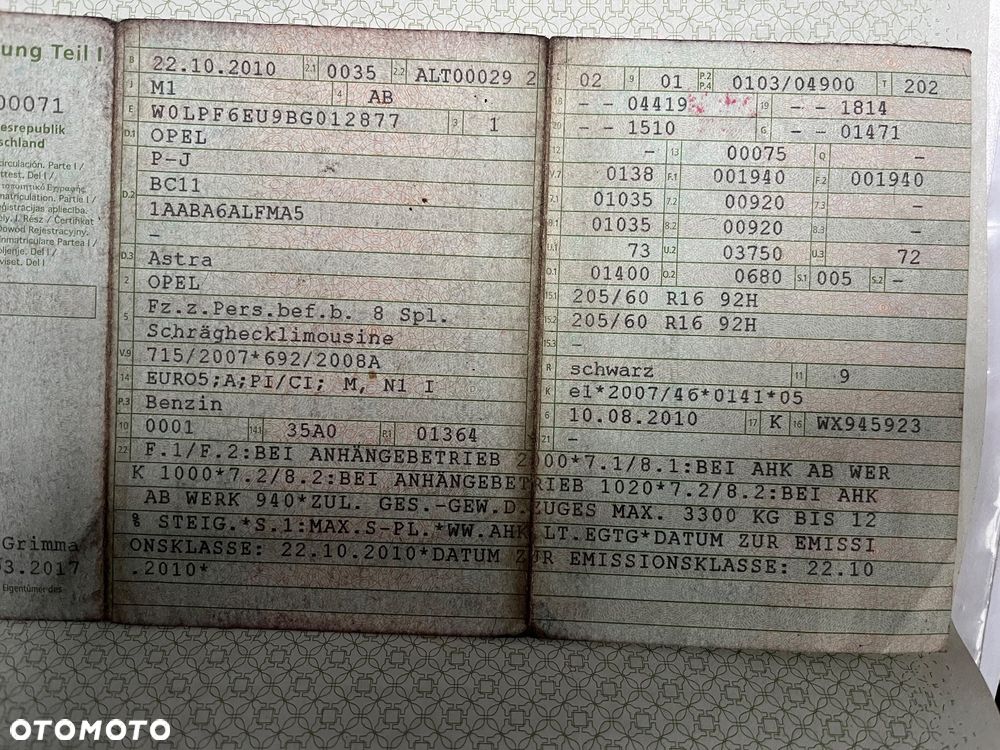 ung Teil I
00071
esrepublik
schland
circulación. Parte I /
ttest. Del I /
matriculation. Partie I /
eģistrācijas apliecība.
ély. I. Rész / Certifikat
Dowód Rejestracyjny.
Inmatriculare Partea I /
oljenje. Del I /
viset. Del I
Grimma
03.2017
Eigentümer des
B 22.10.2010 2.1 0035 2.2 ALT00029 2
J M1 4 AB
E W0LPF6EU9BG012877 3 1
D.1 OPEL
P-J
D.2 BC11
1AABA6ALFMA5
–
D.3 Astra
2 OPEL
5 Fz.z.Pers.bef.b. 8 Spl.
Schräghecklimousine
V.9 715/2007*692/2008A
14 EURO5;A;PI/CI; M, N1 I
P.3 Benzin
10 0001 14.1 35A0 P.1 01364
L 02 9 01 P.2 P.4 0103/04900 T 202
18 – – 04419 19 – – 1814
20 – – 1510 G – – 01471
12 – 13 00075 Q –
V.7 0138 F.1 001940 F.2 001940
7.1 01035 7.2 00920 7.3 –
8.1 01035 8.2 00920 8.3 –
U.1 73 U.2 03750 U.3 72
O.1 01400 O.2 0680 S.1 005 S.2 –
15.1 205/60 R16 92H
15.2 205/60 R16 92H
15.3 –
R schwarz 11 9
K e1*2007/46*0141*05
6 10.08.2010 17 K 16 WX945923
21 –
22 F.1/F.2:BEI ANHÄNGEBETRIEB 2000*7.1/8.1:BEI AHK AB WER
K 1000*7.2/8.2:BEI ANHÄNGEBETRIEB 1020*7.2/8.2:BEI AHK
AB WERK 940*ZUL. GES.-GEW.D.ZUGES MAX. 3300 KG BIS 12
% STEIG.*S.1:MAX.S-PL.*WW.AHK LT.EGTG*DATUM ZUR EMISSI
ONSKLASSE: 22.10.2010*DATUM ZUR EMISSIONSKLASSE: 22.10
.2010*
OTOMOTO